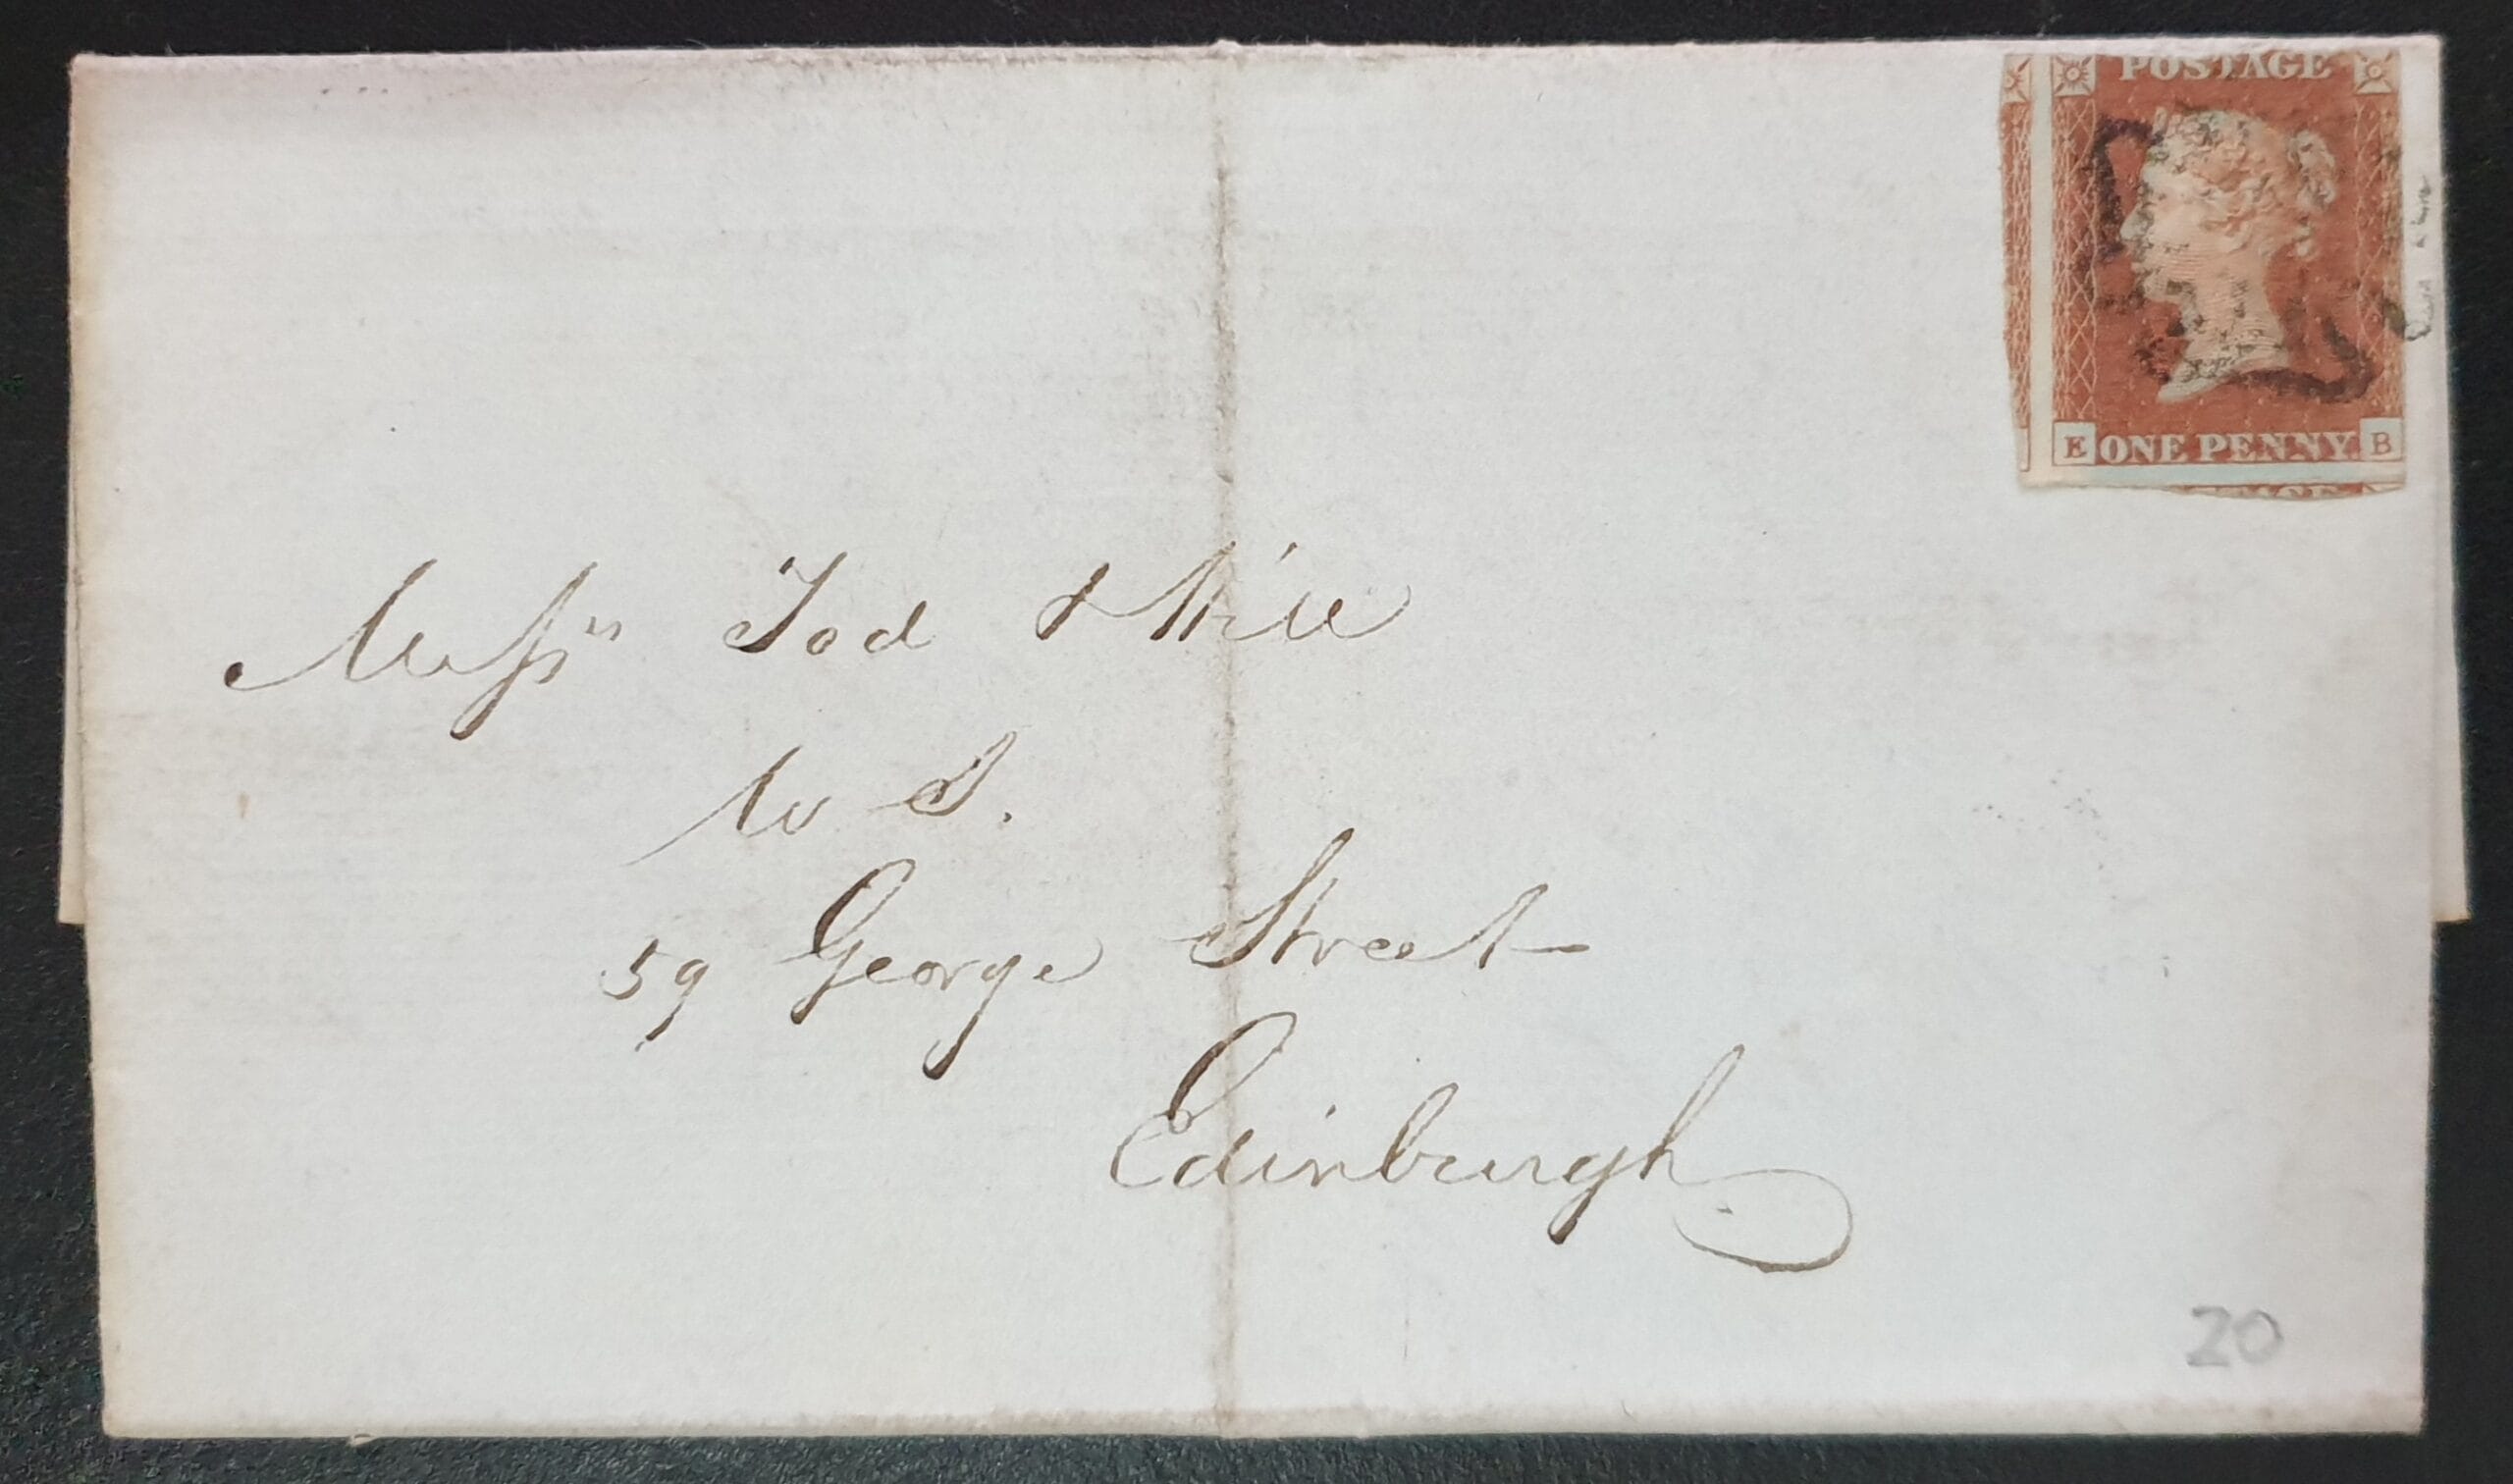 POSTAGE
E ONE PENNY B
Messrs Tod & Hill
W S.
59 George Street
Edinburgh
20